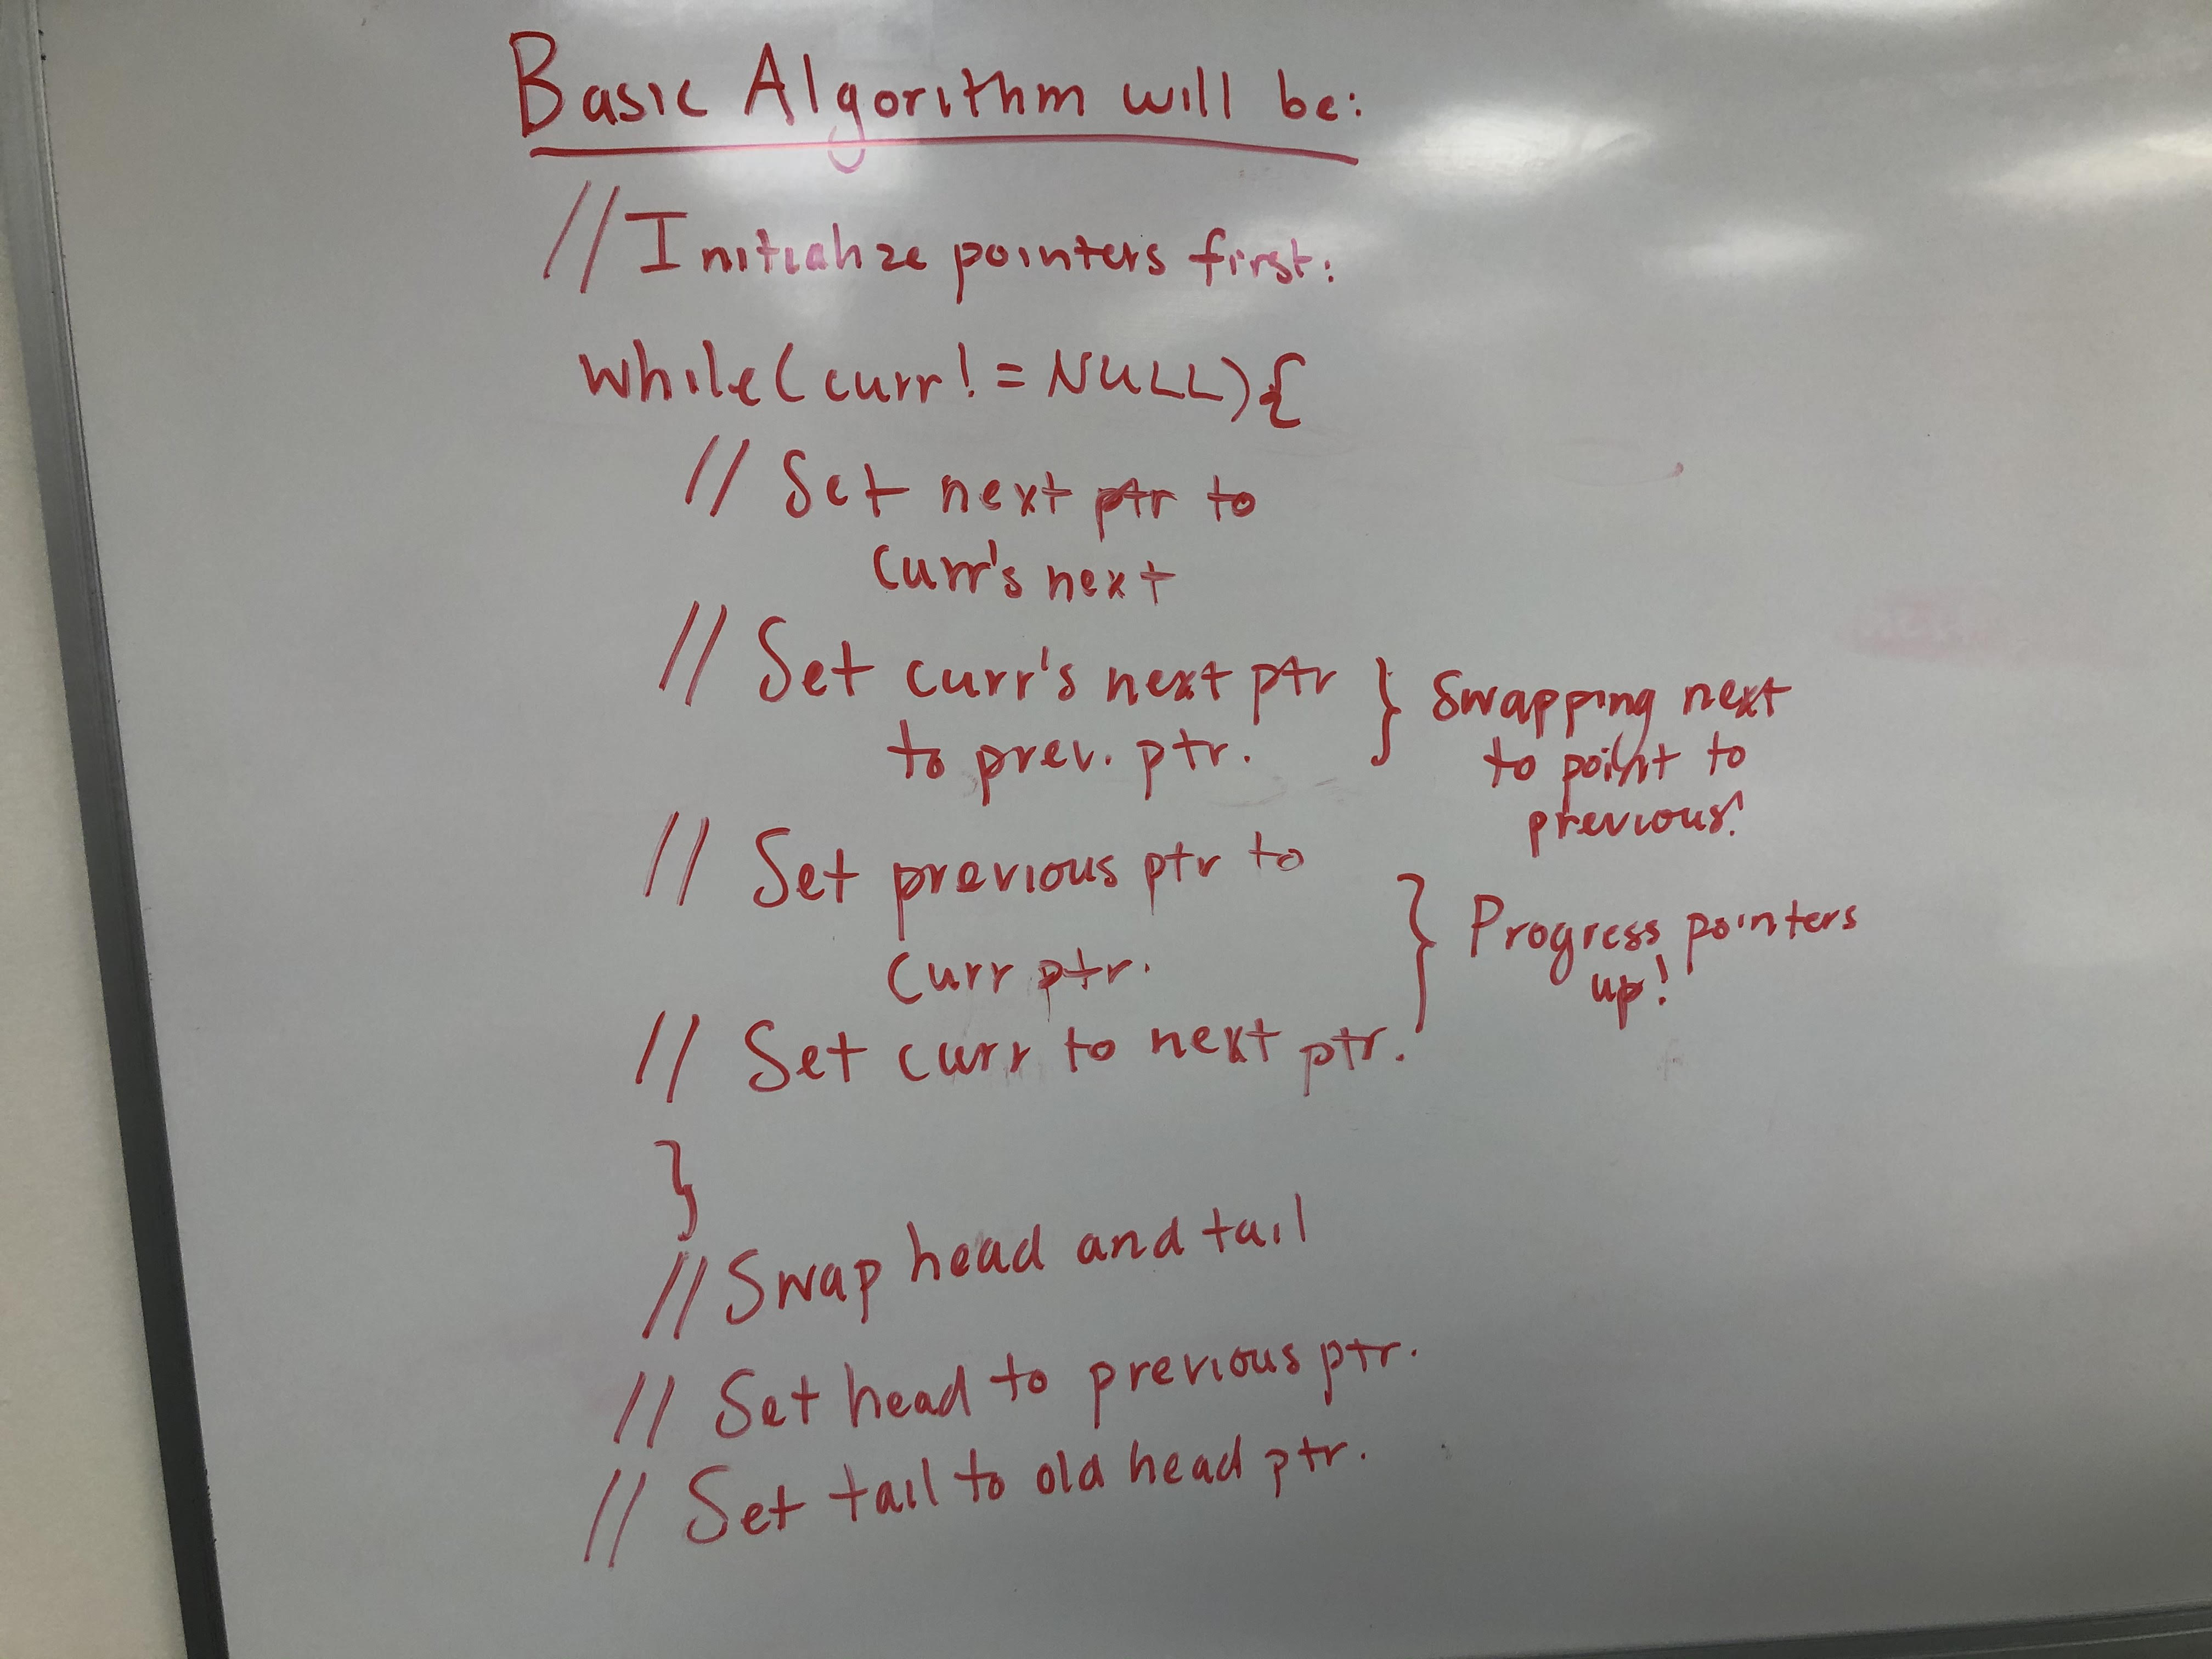 Basic Algorithm will be:
// Initialize pointers first:
while(curr != NULL){
// Set next ptr to
curr's next
// Set curr's next ptr
to prev. ptr.
} Swapping next
to point to
previous!
// Set previous ptr to
curr ptr.
// Set curr to next ptr.
} Progress pointers
up!
}
// Swap head and tail
// Set head to previous ptr.
// Set tail to old head ptr.